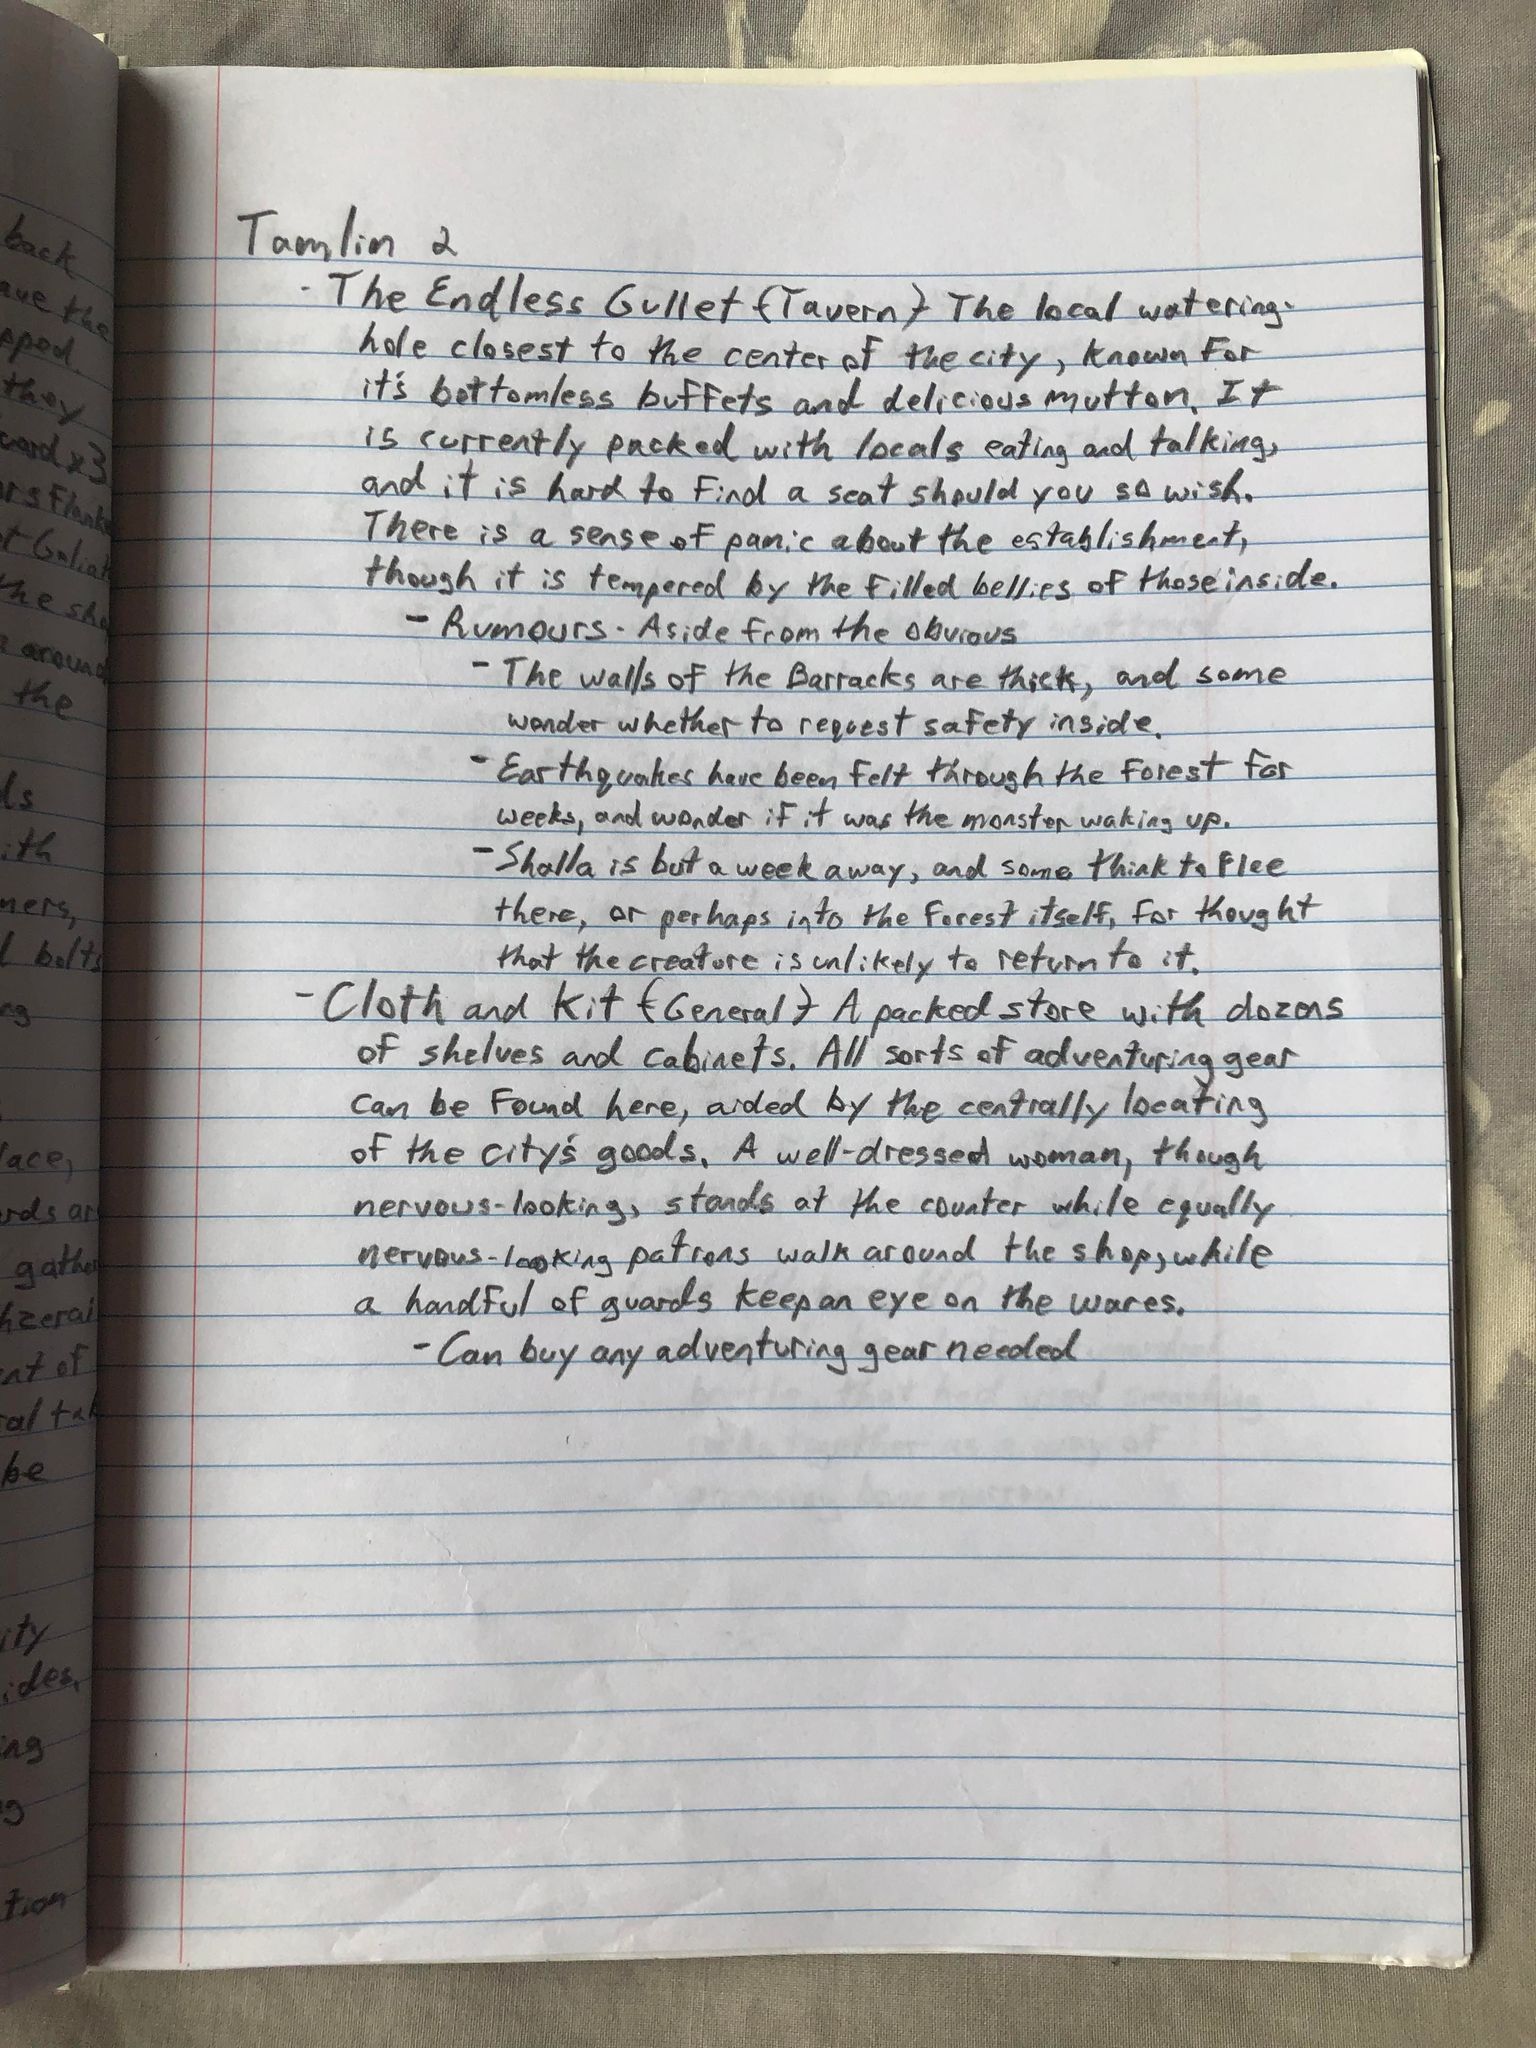 Tamlin 2
- The Endless Gullet {Tavern} The local watering-
hole closest to the center of the city, known for
it's bottomless buffets and delicious mutton. It
is currently packed with locals eating and talking,
and it is hard to find a seat should you so wish.
There is a sense of panic about the establishment,
though it is tempered by the filled bellies of those inside.
- Rumours - Aside from the obvious
- The walls of the Barracks are thick, and some
wonder whether to request safety inside.
- Earthquakes have been felt through the forest for
weeks, and wonder if it was the monster waking up.
- Shalla is but a week away, and some think to flee
there, or perhaps into the forest itself, for thought
that the creature is unlikely to return to it.
- Cloth and Kit {General} A packed store with dozens
of shelves and cabinets. All sorts of adventuring gear
can be found here, aided by the centrally locating
of the city's goods. A well-dressed woman, though
nervous-looking, stands at the counter while equally
nervous-looking patrons walk around the shop, while
a handful of guards keep an eye on the wares.
- Can buy any adventuring gear needed
back
the
they
x3
the
around
the
bolts
gather
be